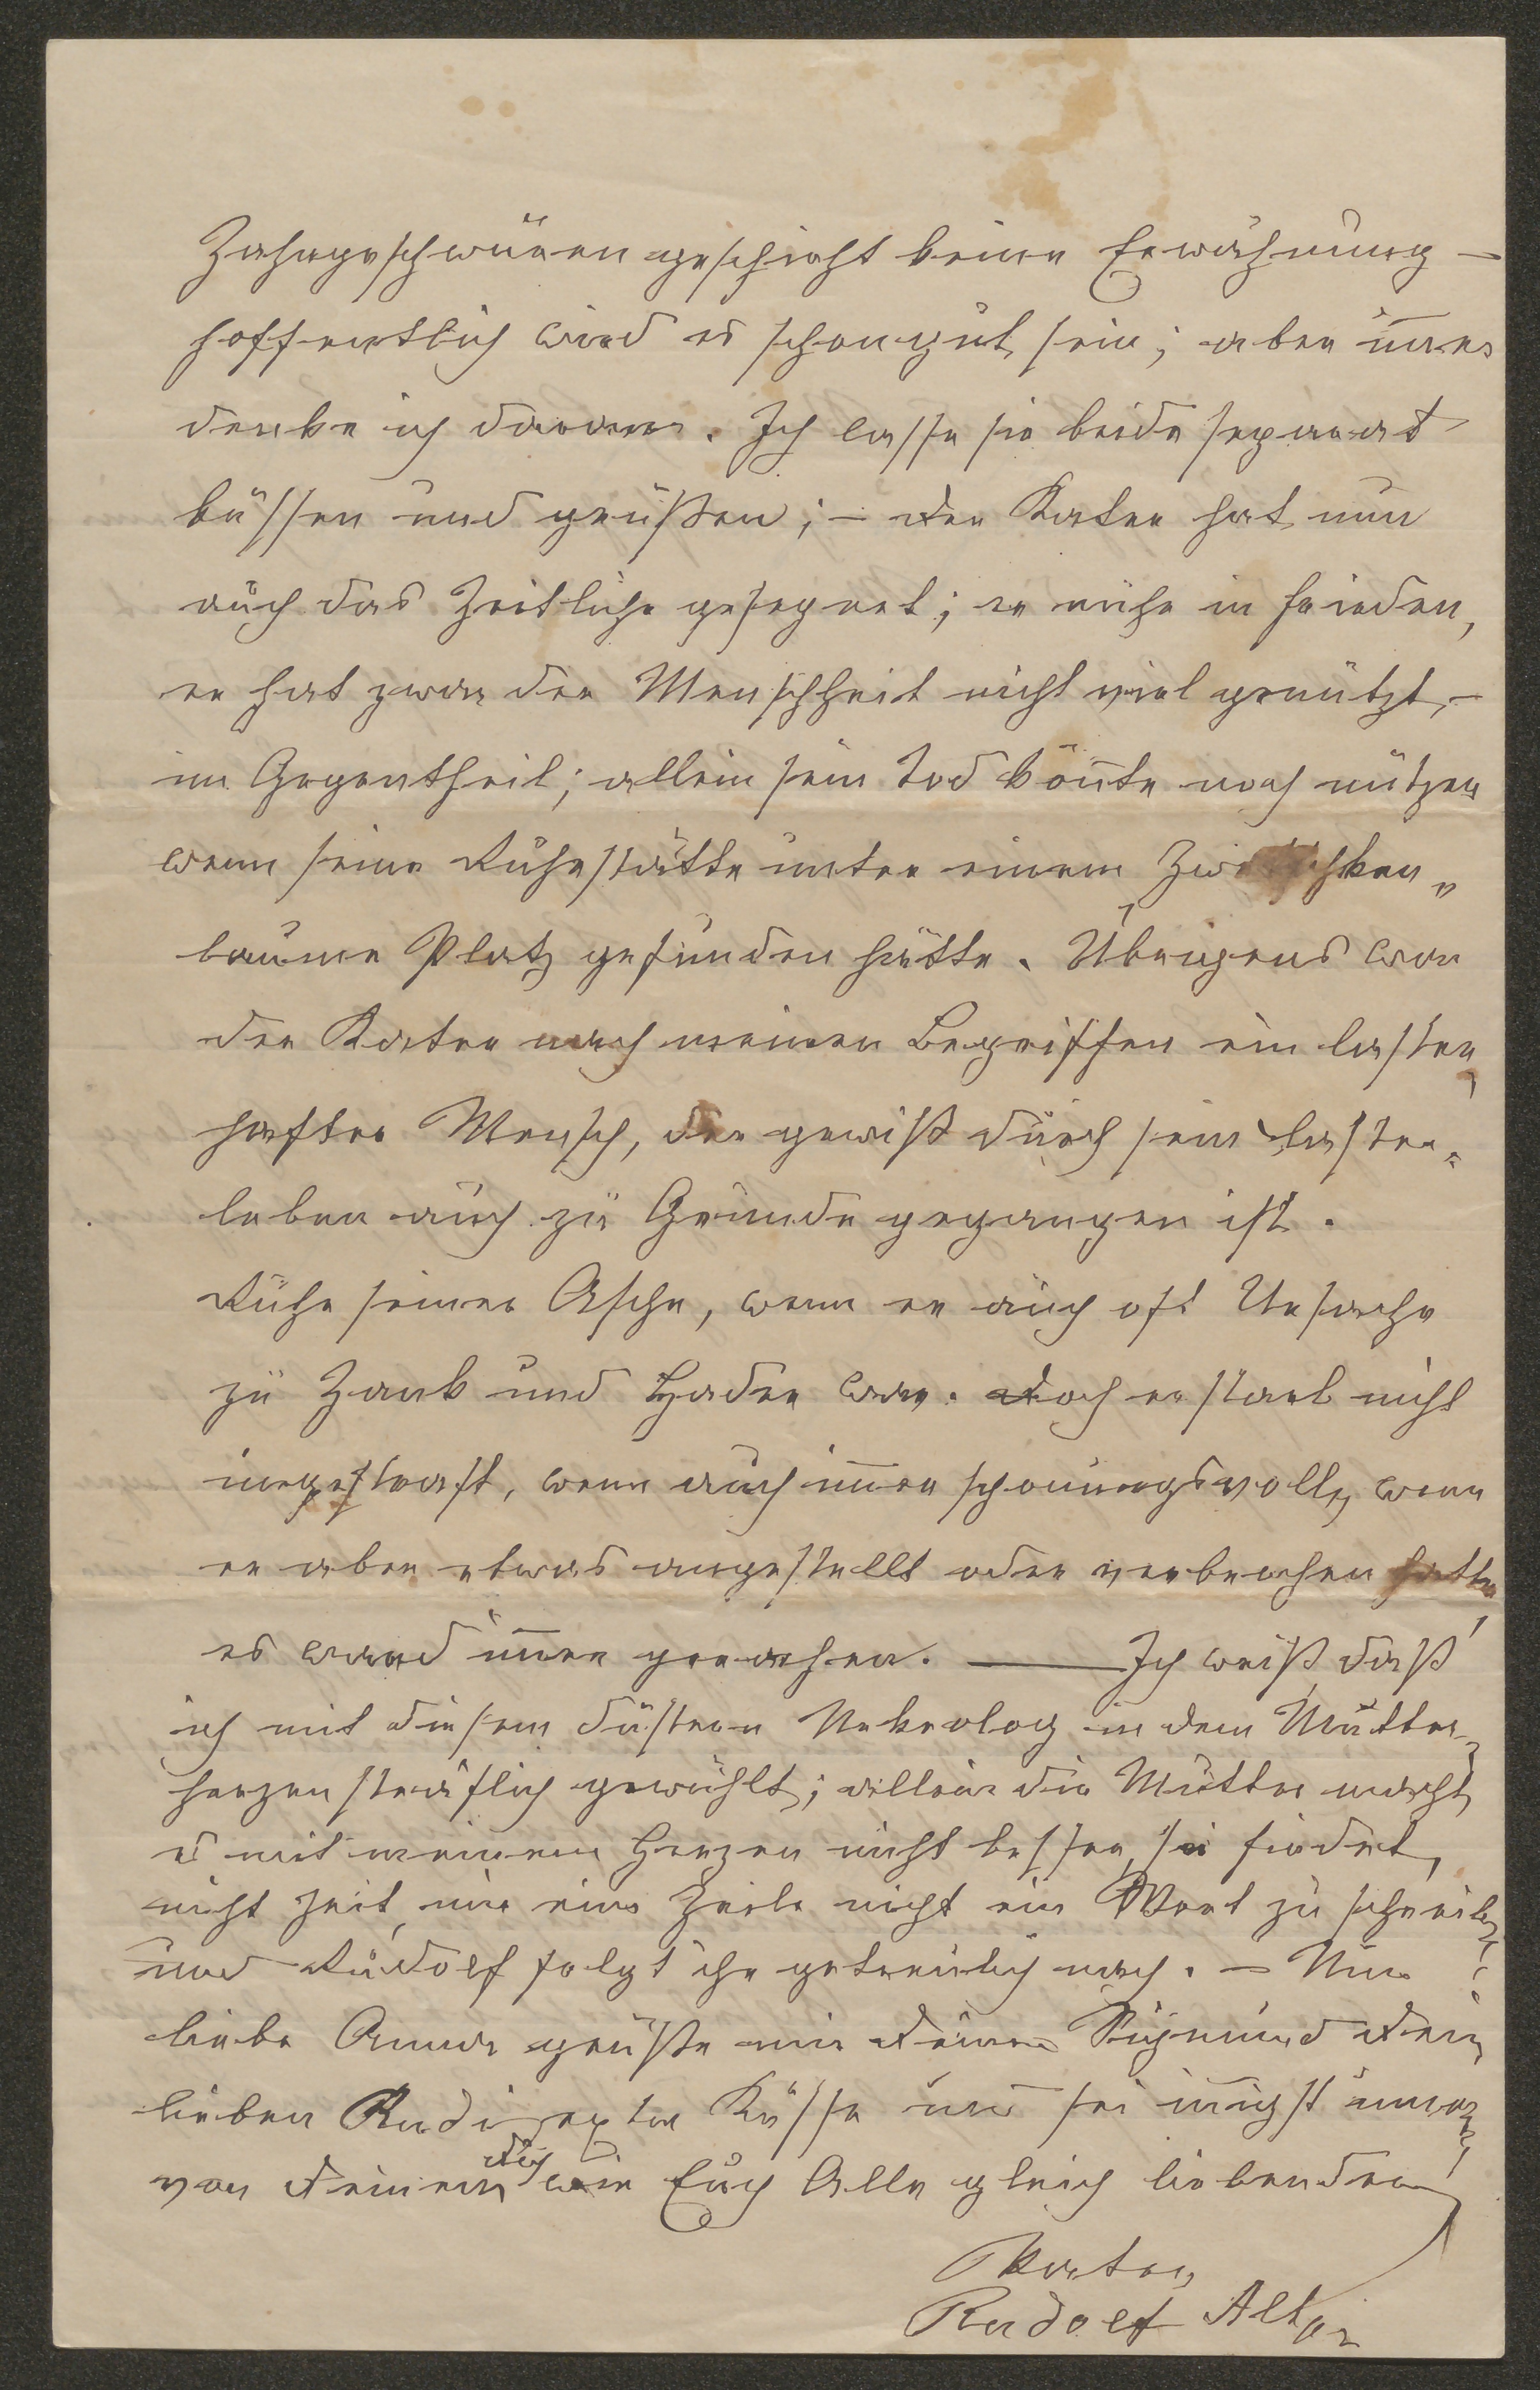 Zahngeschwüren geschieht keine Erwähnung –
hoffentlich wird es schon gut sein; aber im̅er
denke ich daran. Ich lasse sie beide separat
küssen und grüßen; – Der Kater hat nun
auch das Zeitliche gesegnet; er ruhe in Frieden,
er hat zwar der Menschheit nicht viel genützt, –
im Gegentheil; allein sein Tod kön̅te noch nützen
wenn seine Ruhestätte unter einem Zwetschken„
baume Platz gefunden hätte. Übrigens war
der Kater nach meinen Begriffen ein laster„
hafter Mensch, der gewiß durch sein Laster„
leben auch zu Grunde gegangen ist.
Ruhe seiner Asche, wenn er auch oft Ursache
zu Zank und Hader war. Doch er starb nicht
ungestraft, wenn auch im̅er schonungsvoll, wenn
er aber etwas angestellt oder verbrochen hatte,
es ward im̅er gerochen. — Ich weiß daß
ich mit diesem düstern Nekrolog in dem Mutter„
herzen sträflich gewühlt; allein die Mutter macht
es mit meinem Herzen nicht besser, sie findet
nicht Zeit, mir eine Zeile nicht ein Wort zu schreiben,
und Rudolf folgt ihr getreulich nach. – Nun
liebe Anna grüße mir Deinen Sigmund Dein
lieben Rudi extra Küsse und sei in̅igst umarmt
von Deinem Dich wie Euch Alle gleich liebenden
Vater
Rudolf Alt